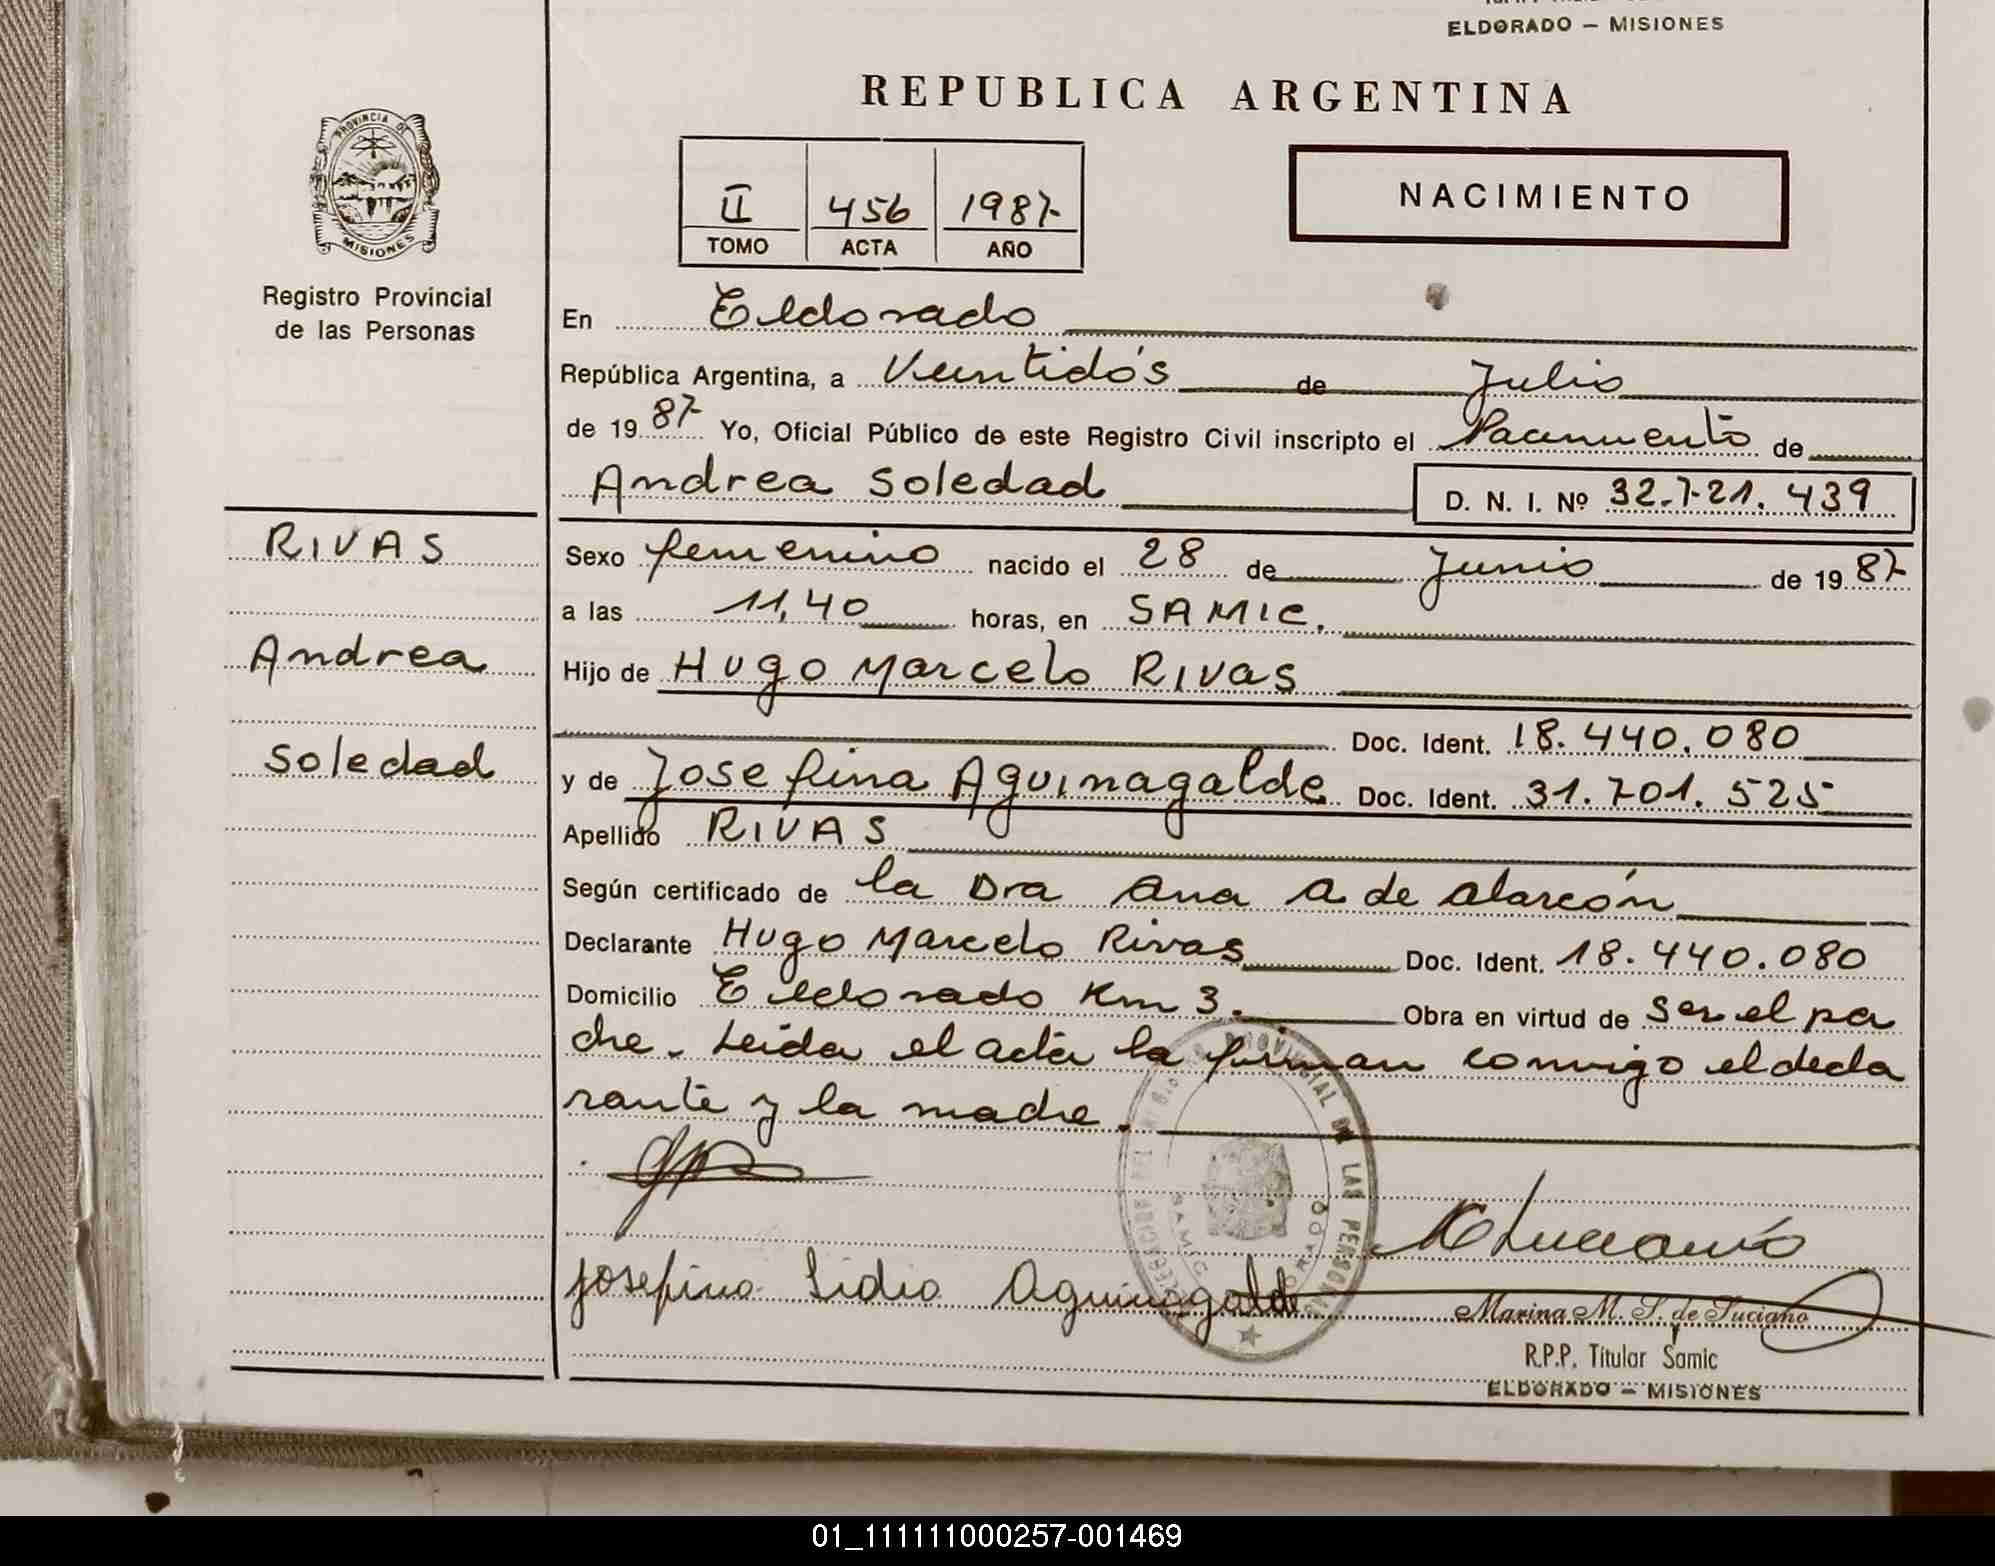 ELDORADO – MISIONES
REPUBLICA ARGENTINA
PROVINCIA DE
MISIONES
Registro Provincial
de las Personas
II 456 1987
TOMO ACTA AÑO
NACIMIENTO
En Eldorado
República Argentina, a Veintidós de Julio
de 1987 Yo, Oficial Público de este Registro Civil inscripto el Nacimiento de
Andrea Soledad D. N. I. Nº 32.721.439
RIVAS
Andrea
Soledad
Sexo femenino nacido el 28 de Junio de 1987
a las 11,40 horas, en SAMIC.
Hijo de Hugo Marcelo Rivas
Doc. Ident. 18.440.080
y de Josefina Aguinagalde Doc. Ident. 31.701.525
Apellido RIVAS
Según certificado de la Dra Ana A de Alarcón
Declarante Hugo Marcelo Rivas Doc. Ident. 18.440.080
Domicilio Eldorado Km 3. Obra en virtud de ser el pa
dre. Leída el acta la firman conmigo el decla
rante y la madre.
PROVINCIAL DE LAS PERSONAS
SAMIC
Josefina Lidia Aguinagalde
Marina M. S. de Luciano
R.P.P. Titular Samic
ELDORADO – MISIONES
01_111111000257-001469